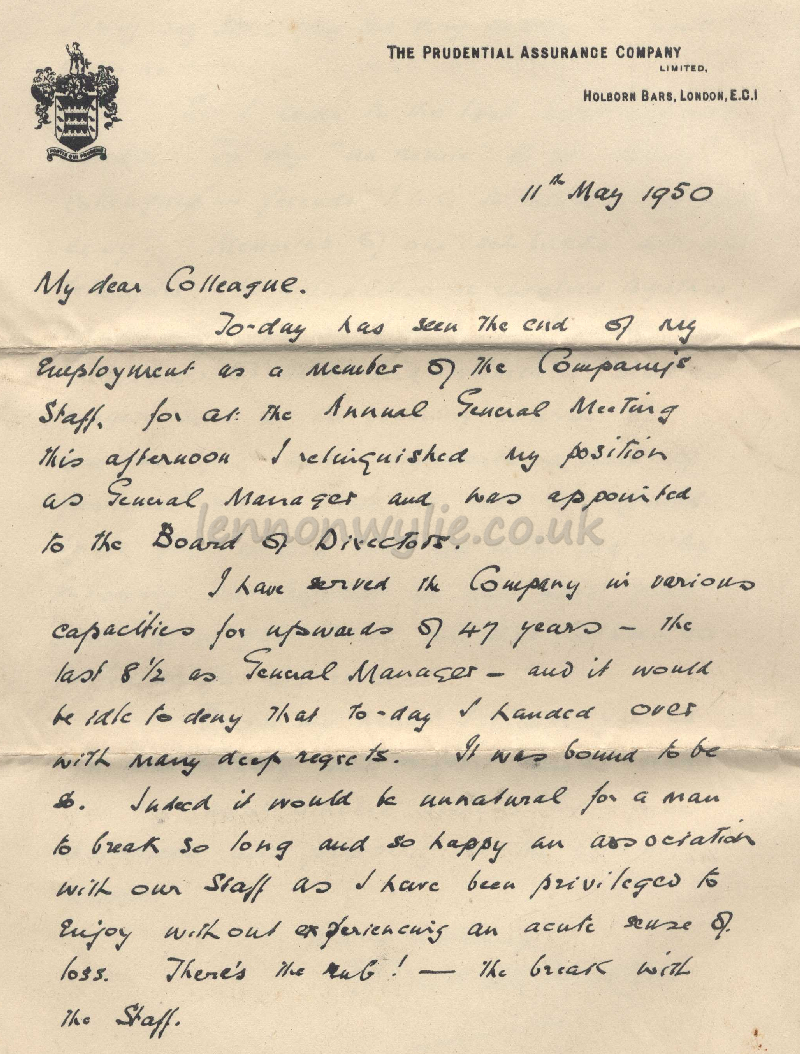 THE PRUDENTIAL ASSURANCE COMPANY
LIMITED,
HOLBORN BARS, LONDON, E.C.1
FORTIS QUI PRUDENS
11th May 1950
My dear Colleague.
To-day has seen the end of my
Employment as a member of the Company's
Staff, for at the Annual General Meeting
this afternoon I relinquished my position
as General Manager and was appointed
to the Board of Directors.
lennonwylie.co.uk
I have served the Company in various
capacities for upwards of 47 years – the
last 8 1/2 as General Manager – and it would
be idle to deny that to-day I handed over
with many deep regrets. It was bound to be
so. Indeed it would be unnatural for a man
to break so long and so happy an association
with our Staff as I have been privileged to
Enjoy without experiencing an acute sense of
loss. There's the rub! — the break with
the Staff.